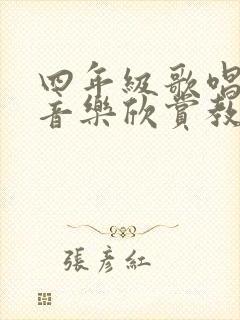 四年級歌唱
音樂欣賞教
張彥紅